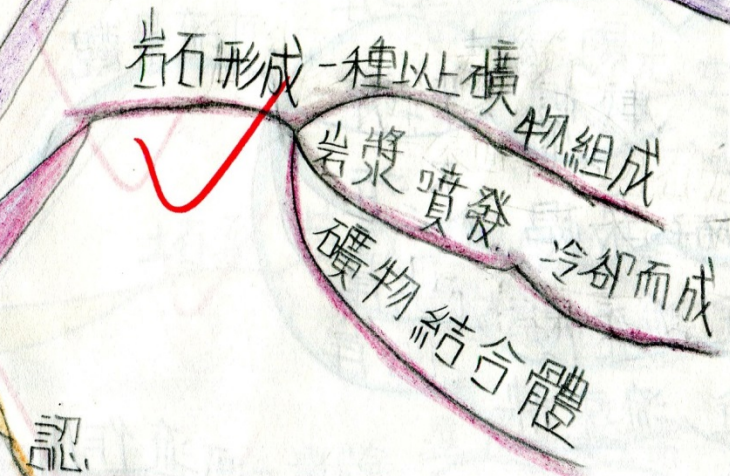 岩石形成
一種以上礦物組成
岩漿噴發 冷卻而成
礦物結合體
認